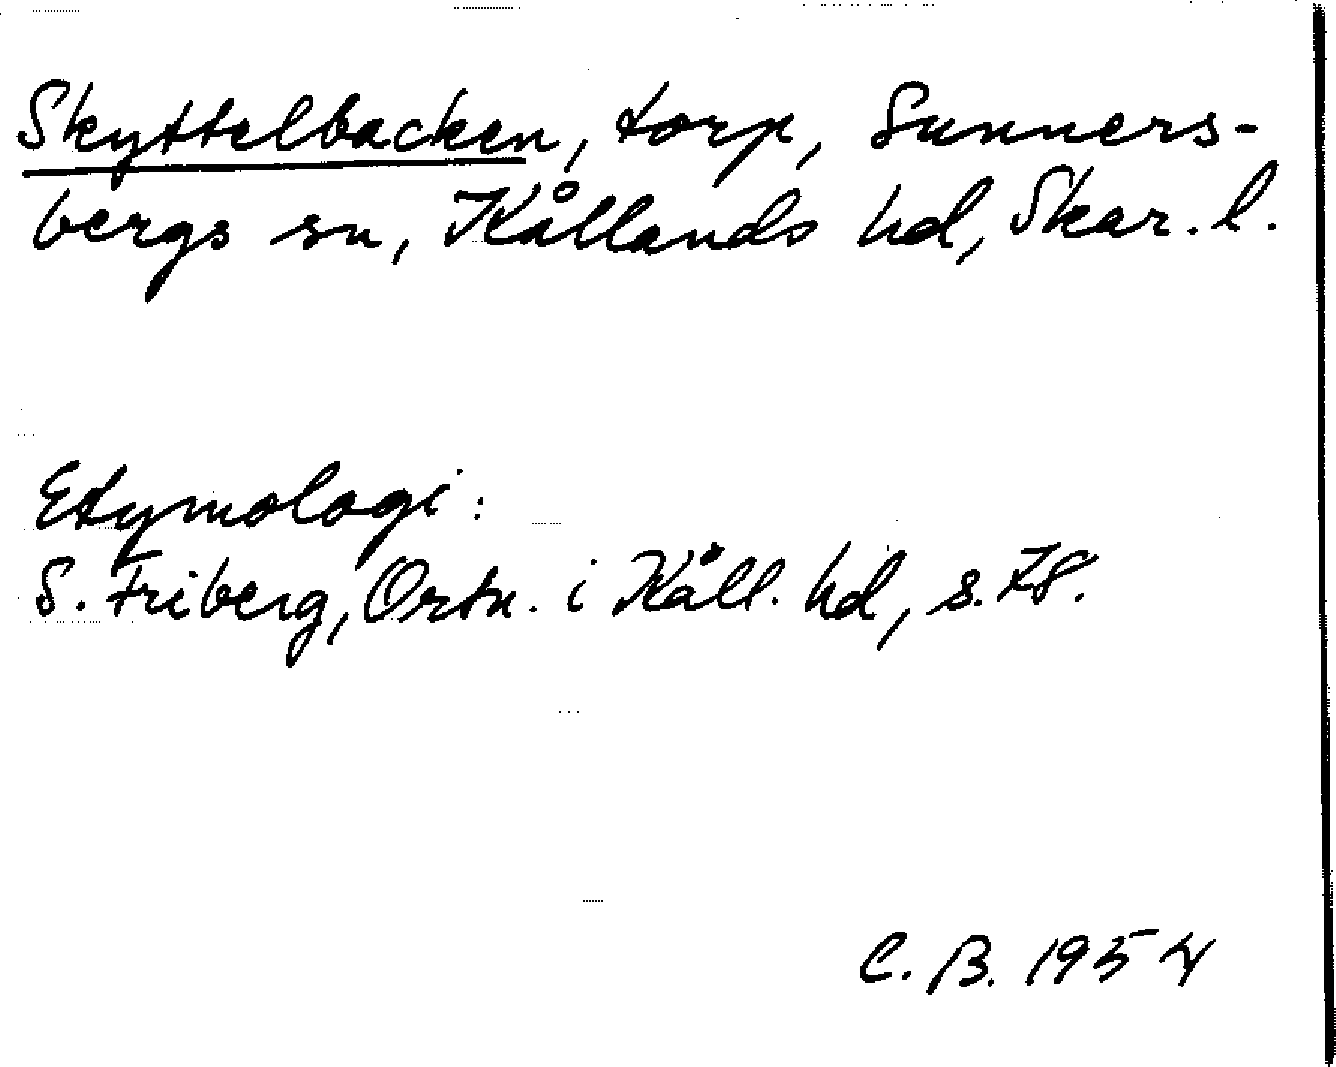 Skyttelbacken, torp, Sunners-
bergs sn, Kållands hd, Skar. l.
Etymologi:
S. Friberg, Ortn. i Kåll. hd, s. 78.
C. B. 1954